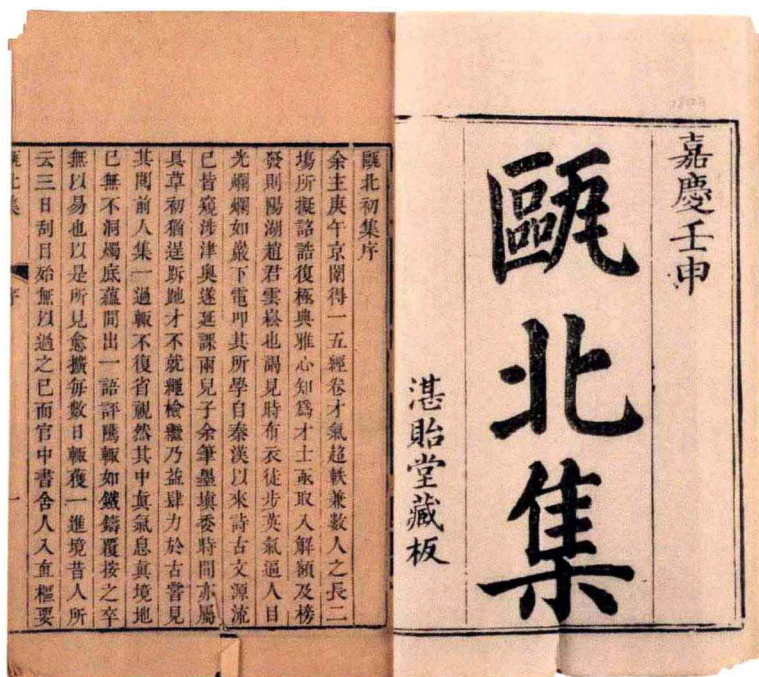 嘉慶壬申
甌北集
湛貽堂藏板
甌北初集序
余主庚午京闈得一五經卷才氣超軼兼數人之長二
塲所擬詔誥復極典雅心知為才士亟取入解額及榜
發則陽湖趙君雲崧也謁見時布衣徒步英氣逼人目
光爛爛如巖下電叩其所學自秦漢以來詩古文源流
已皆窺涉津奧遂延課兩兒子余筆墨填委時間亦屬
具草初猶逞跅跎才不就繩檢繼乃益肆力於古嘗見
其閱前人集一過輒不復省視然其中真氣息真境地
已無不洞燭底蘊間出一語評騭輒如鐵鑄覆按之卒
無以易也以是所見愈擴每數日輒獲一進境昔人所
云三日刮目殆無以過之已而官中書舍人入直樞要
甌北集
序
一